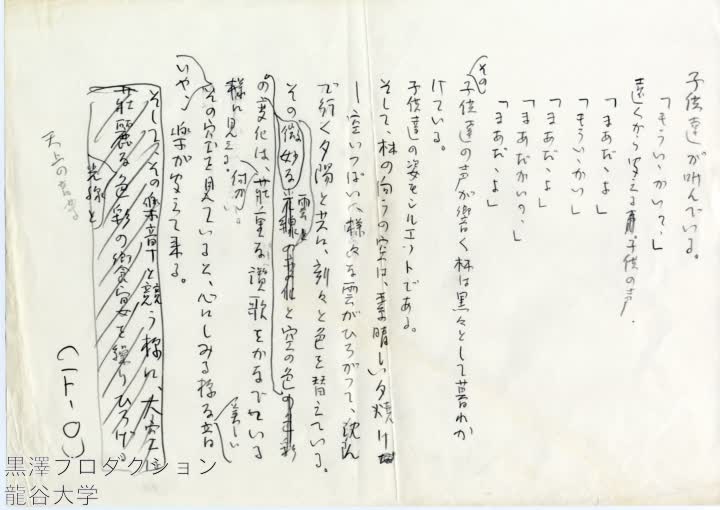 子供達が叫んでいる。
「もういゝかい、」
遠くから変える子供の声.
「まあだゝよ」
「もういゝかい」
「まあだゝよ」
「まあだかいの」
「まあだゝよ」
その
子供達の声が響く林は黒々として暮れか
けている。
子供達の姿もシルエットである。
そして、林の向うの空は、素晴しい夕焼け
ー空いっぱいに様々な雲がひろがって、沈ん
で行く夕陽と共に、刻々と色を替えている。
その微妙な光線の変化と空の色の
雲と
の変化は、荘重な讃歌をかなでている
様に見える。
付加
その空を見ていると、心にしみる様な音
美しい
いや、楽が変えて来る。
そして、その楽章と競う様に、大空に
荘麗な色彩の饗宴を繰りひろげる。
光線と
天上の音楽
黒澤プロダクション
龍谷大学